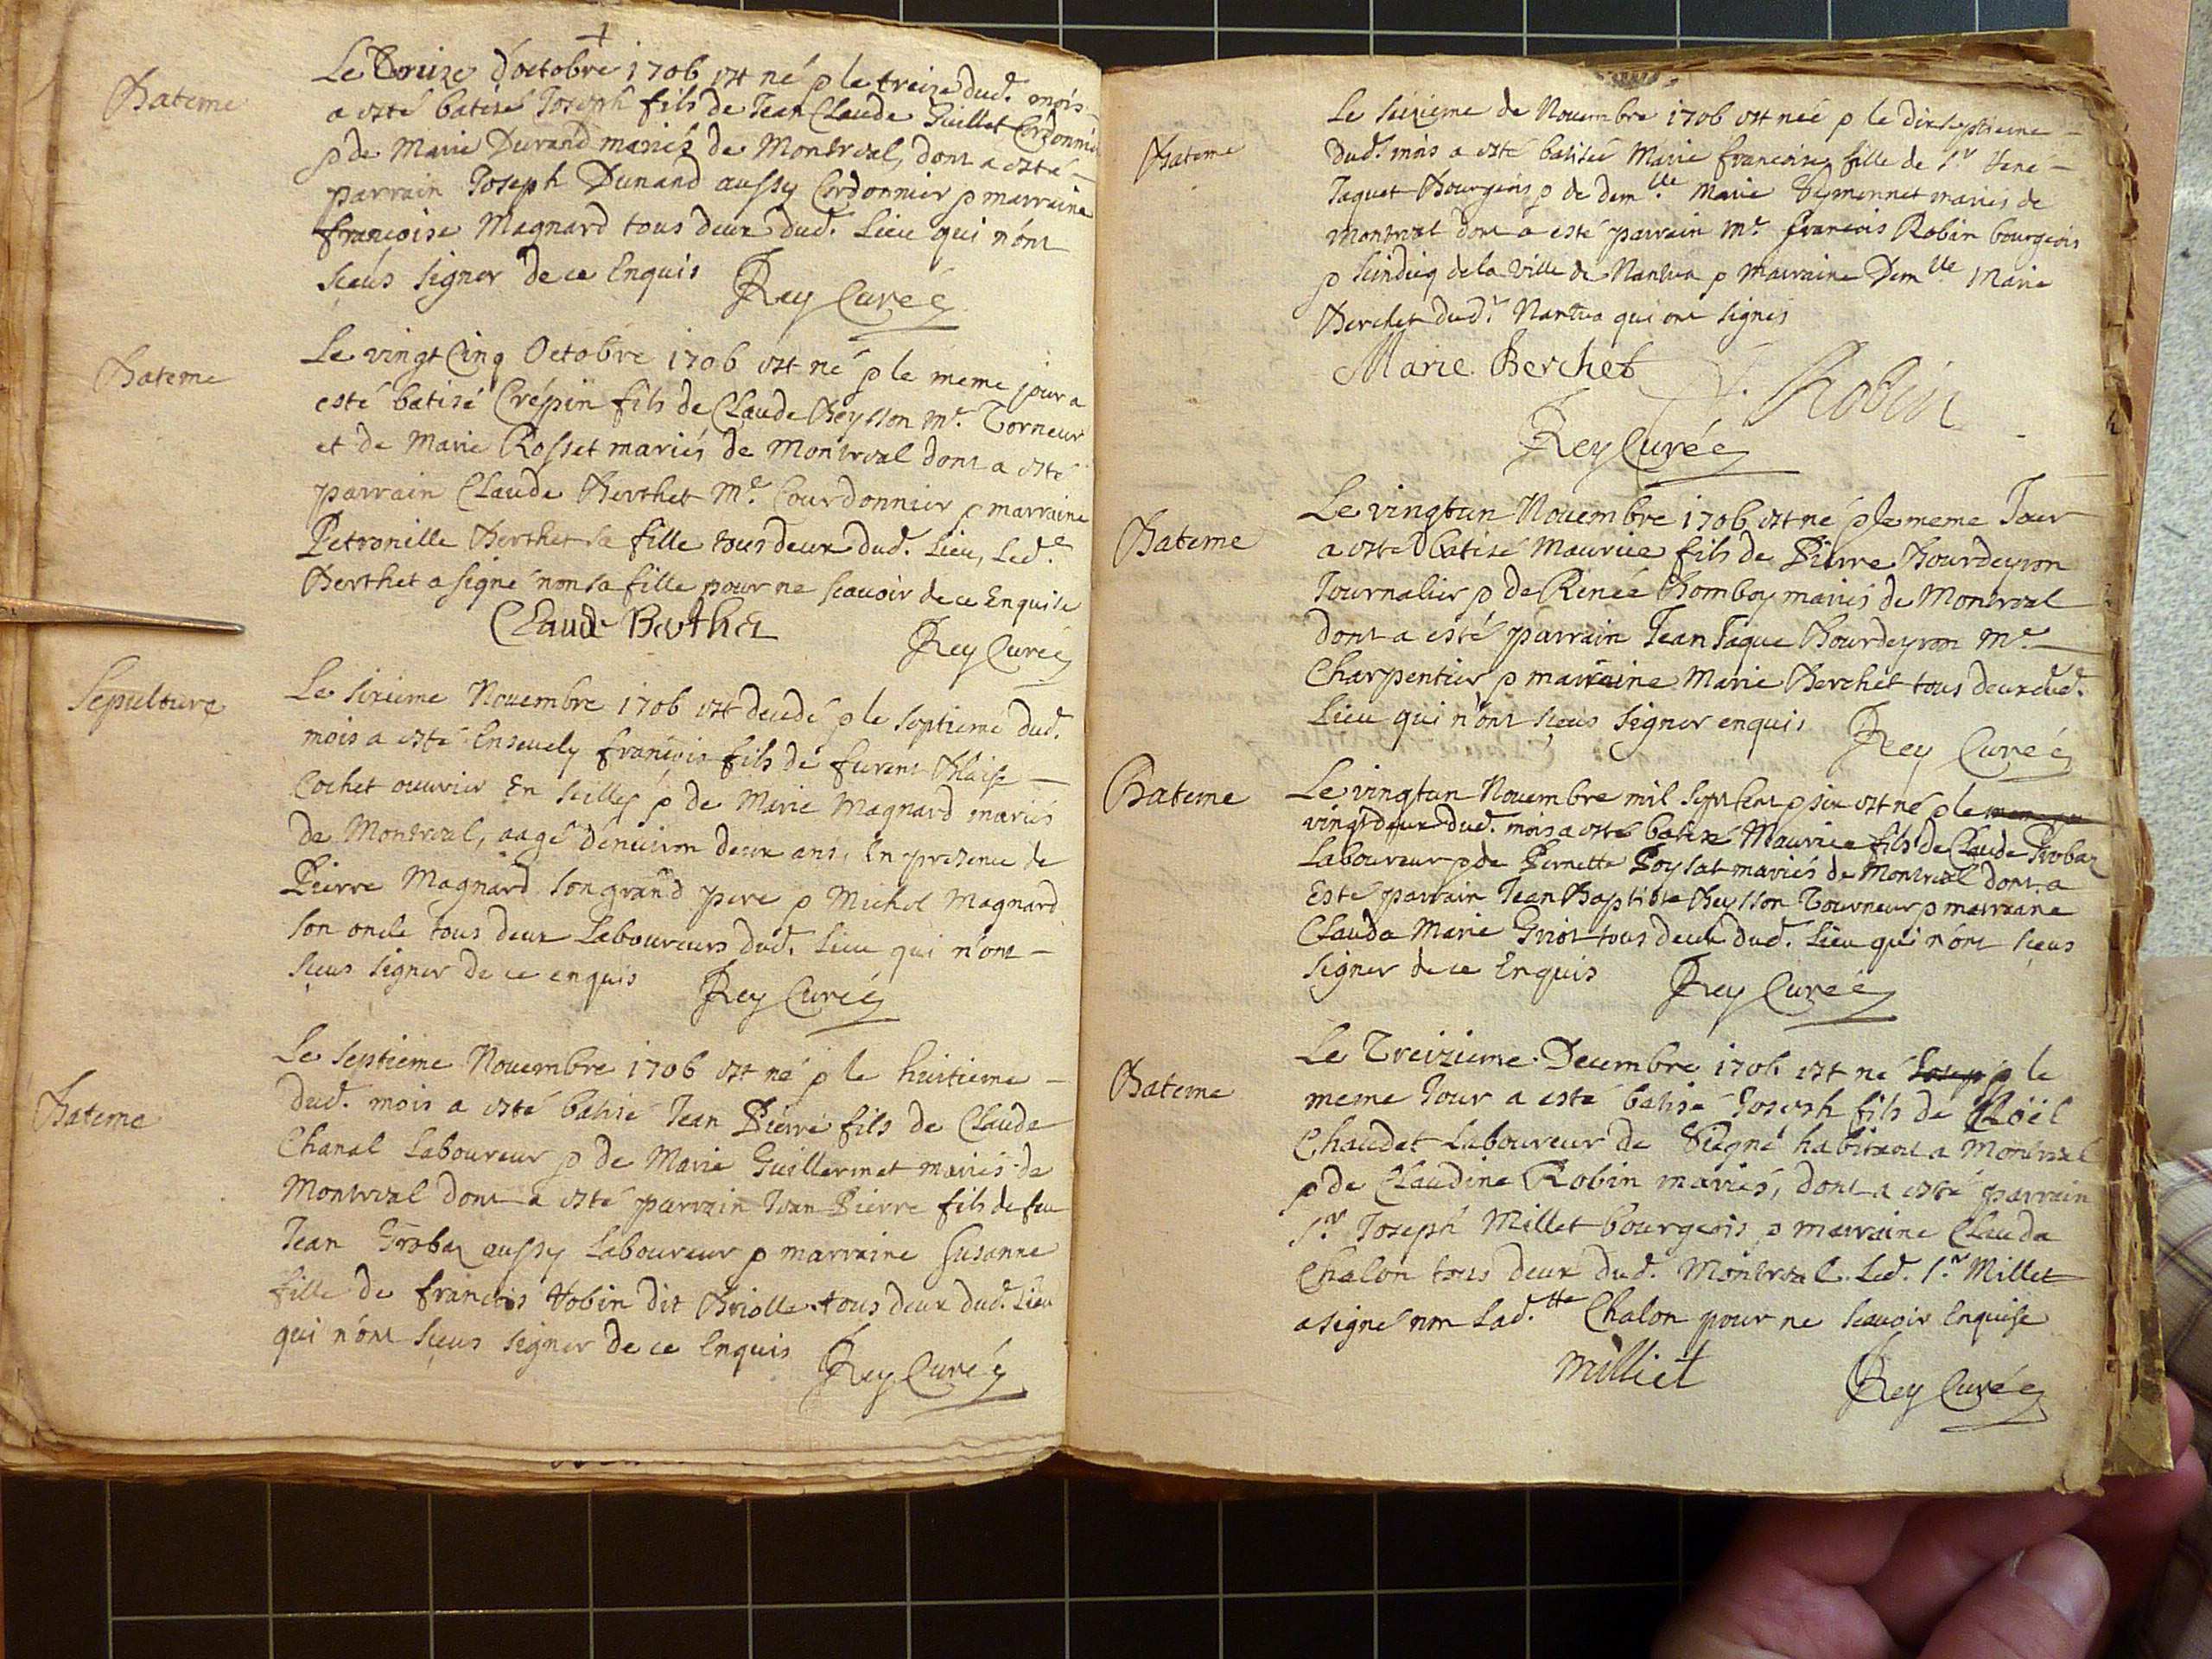 Bateme
Le Treize d'octobre 1706 est né & le treize dud. mois
a esté batisé Joseph fils de Jean Claude Guillet Cordonnier
& de Marie Durand mariés de Montreal, dont a esté
parrain Joseph Dunand aussy Cordonnier & marraine
françoise Magnard tous deux dud. Lieu qui n'ont
sçeus signer de ce Enquis
Rey Curé
Bateme
Le vingt Cinq Octobre 1706 est né & le meme jour a
esté batisé Crépin fils de Claude Beysson Mᵉ. Torneur
et de Marie Rosset mariés de Montreal dont a esté
parrain Claude Berthet Mᵉ. Courdonnier & marraine
Petronille Berthet sa fille tous deux dud. Lieu, Led.
Berthet a signé non sa fille pour ne scauoir de ce Enquise
Claude Berthet
Rey Curé
Sepulture
Le sixieme Nouembre 1706 est decedé & le septieme dud.
mois a esté Enseuely françois fils de furent Blaise
Cochet ouurier En seilles & de Marie Magnard mariés
de Montreal, aagé d'enuiron deux ans, En presence de
Pierre Magnard son grand pere & Michel Magnard
son oncle tous deux Laboureurs dud. Lieu qui n'ont
sçeus signer de ce enquis
Rey Curé
Bateme
Le septieme Nouembre 1706 est né & le huitieme
dud. mois a esté batisé Jean Pierre fils de Claude
Chanal Laboureur & de Marie Guillermet mariés de
Montreal dont a esté parrain Jean Pierre fils de feu
Jean Grobaz aussy Laboureur & marraine Susanne
fille de françois Vobin dit Briolle tous deux dud. Lieu
qui n'ont sçeus signer de ce Enquis
Rey Curé
Bateme
Le seizieme de Nouembre 1706 est née & le dixseptieme
dud. mois a esté batisée Marie françoise fille de Sʳ René
Jaquet Bourgeois & de demˡˡᵉ Marie mariés de
Montreal dont a esté parrain Mʳ. françois Robin bourgeois
& scindicq de la Ville de Nantua & marraine Demˡˡᵉ Marie
Berchet dud. Nantua qui ont signés
Marie Berchet
Robin
Rey Curé
Bateme
Le vingtun Nouembre 1706 est né & le meme Jour
a esté batisé Maurice fils de Pierre Bourdeyron
Journalier & de Renée Bomboy mariés de Montreal
dont a esté parrain Jean Jaque Bourdeyron Mᵉ
Charpentier & marraine Marie Berchet tous deux dud.
Lieu qui n'ont sçeus signer enquis
Rey Curé
Bateme
Le vingtun Nouembre mil sept cent & six est né & le
vingtdeux dud. mois a esté batisé Maurice fils de Claude Grobaz
Laboureur & de Pernette Poysat mariés de Montreal dont a
Esté parrain Jean Baptiste Beysson Tourneur & marraine
Clauda Marie Griot tous deux dud. Lieu qui n'ont sçeus
signer de ce Enquis
Rey Curé
Bateme
Le Treizieme Decembre 1706 est né Josep & le
meme Jour a esté batisé Joseph fils de Noël
Chaudet Laboureur de habitant a Montreal
& de Claudine Robin mariés, dont a esté parrain
Sʳ. Joseph Millet bourgeois & marraine Clauda
Chalon tous deux dud. Montreal. Led. Sʳ. Millet
a signé non Lad.ᵗᵗᵉ Chalon pour ne scauoir Enquise
Milliet
Rey Curé